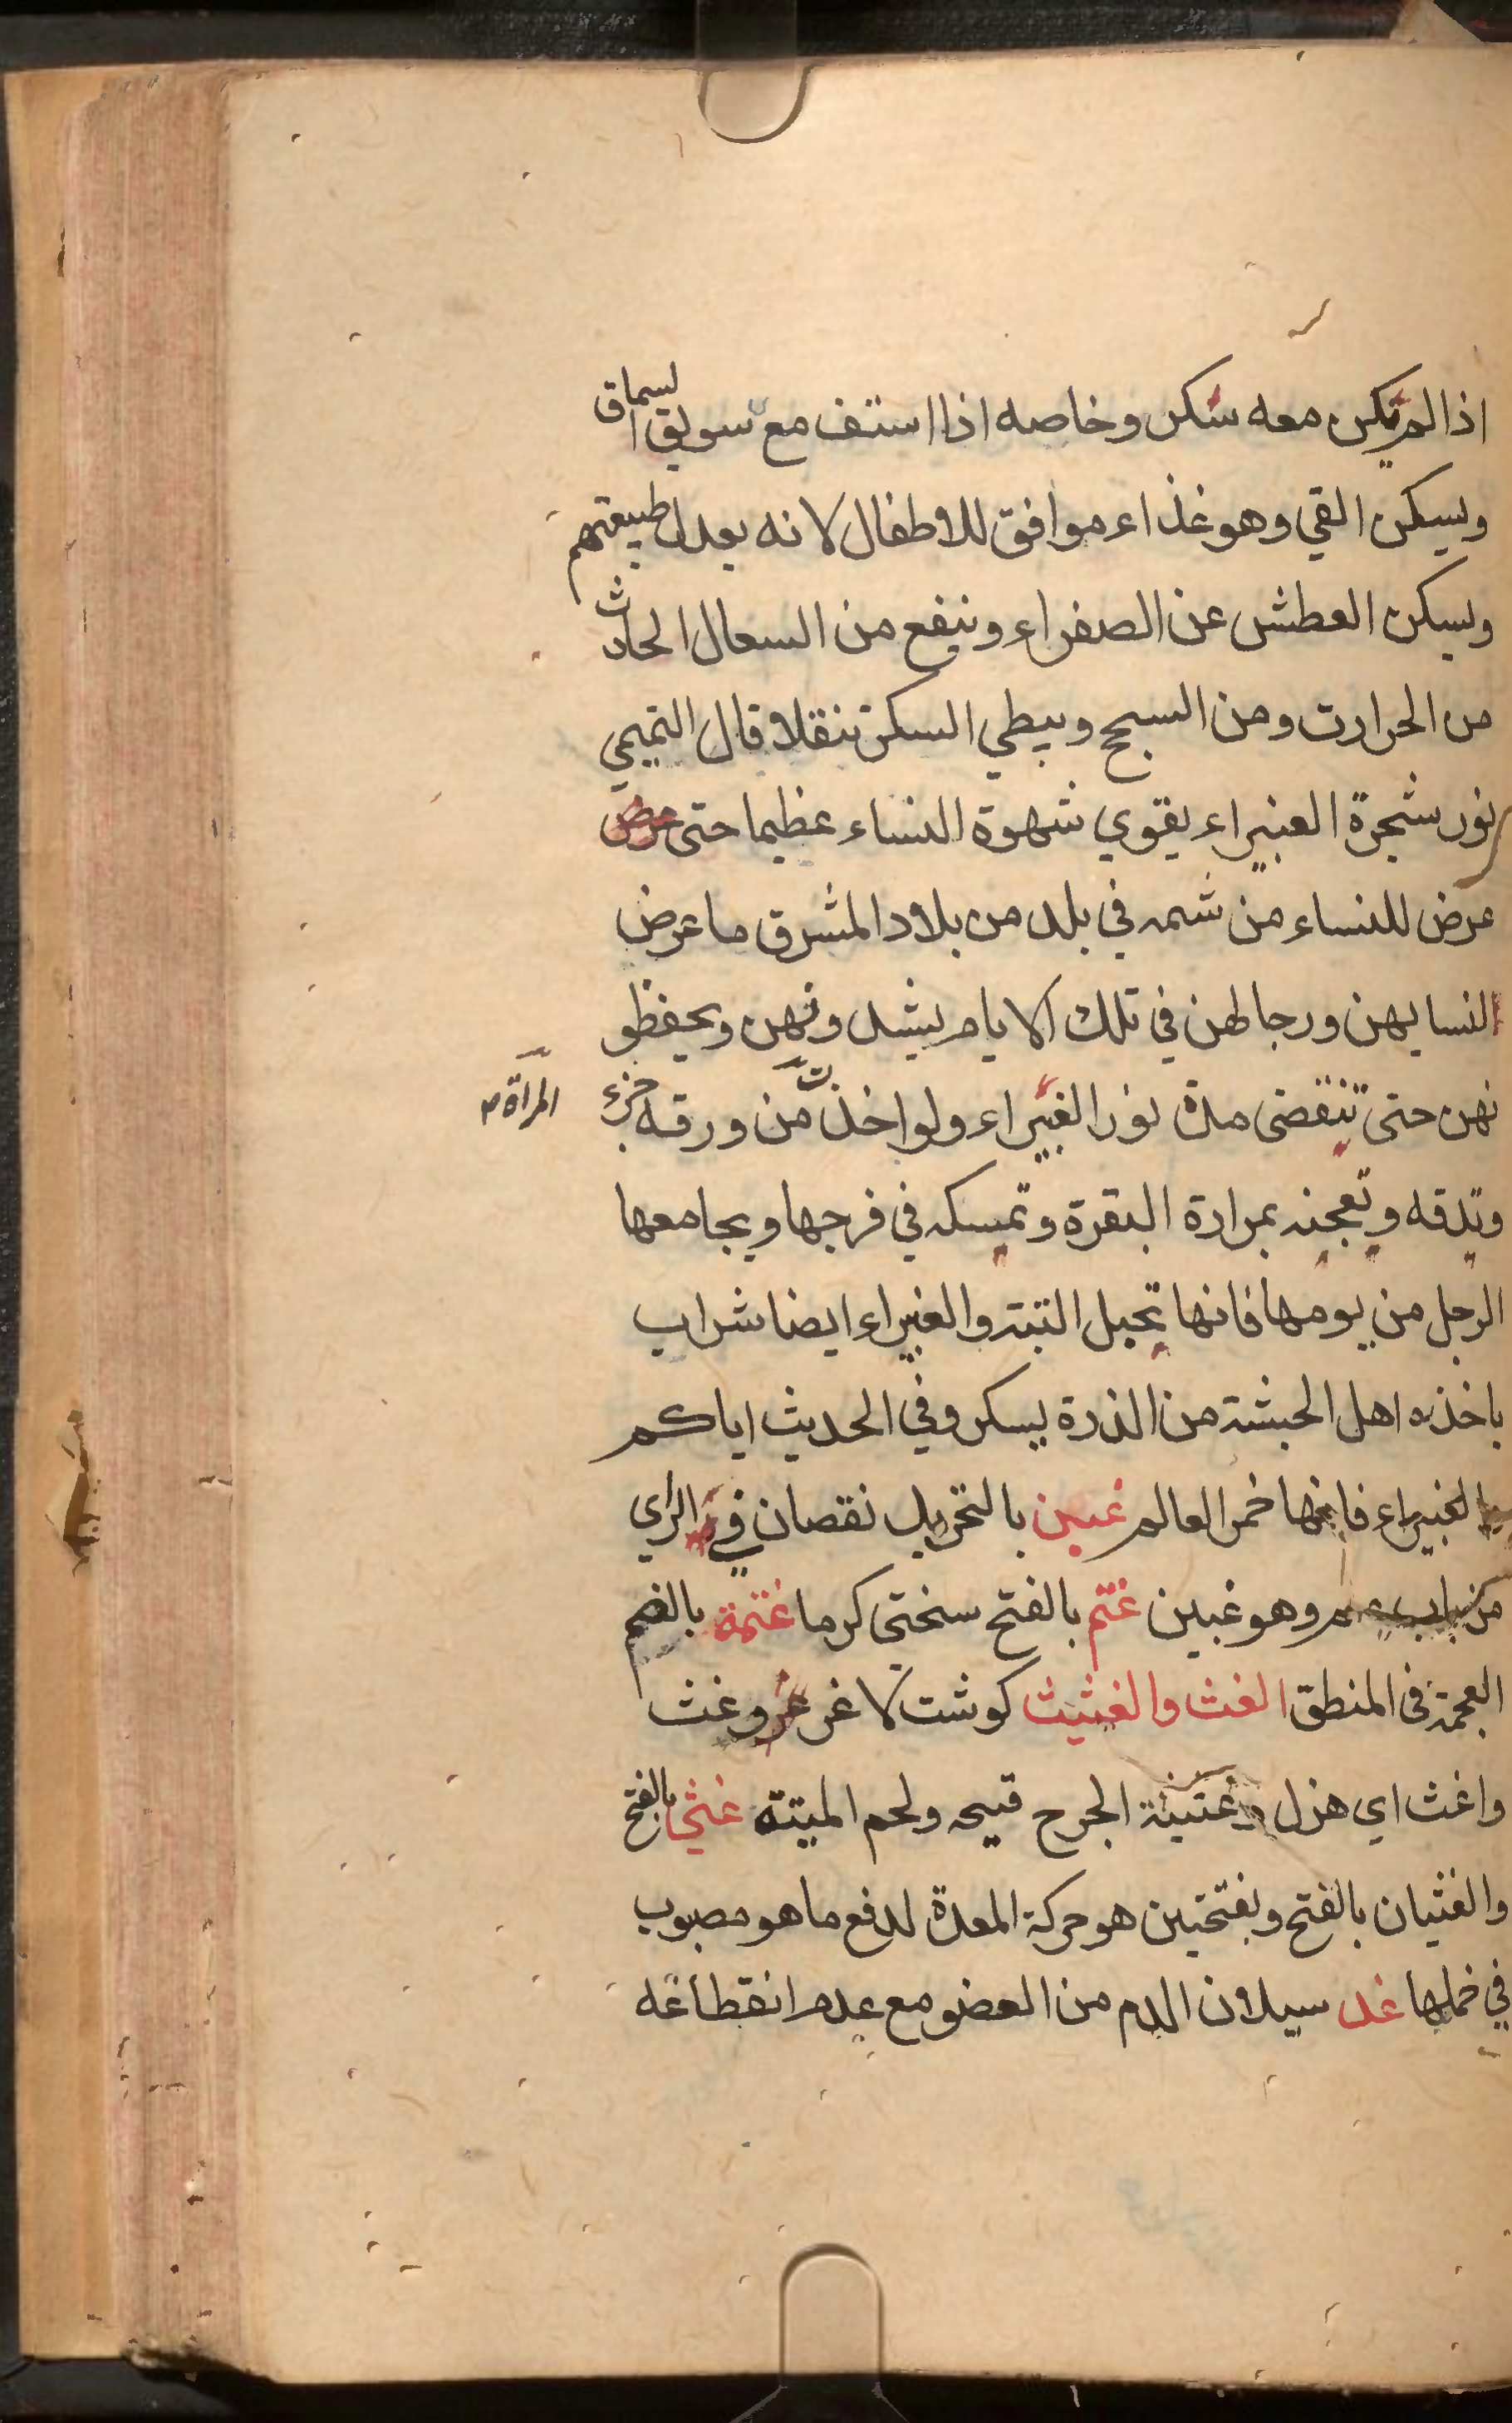 اذا لم يكن معه سكن وخاصه اذا استف مع سويق السماق
ويسكن القي وهو غذاء موافق للاطفال لانه يعدل طبيعتهم
ويسكن العطش عن الصفراء وينفع من السعال الحادث
من الحرارت ومن السبح ويبطي السكر تنقلا قال التميمي
نور شجرة الغبيراء يقوي شهوة النساء عظيما حتى عرض
عرض للنساء من شمه في بلد من بلاد المشرق ما عرض
النسايهن ورجالهن في تلك الايام يشدونهن ويحفظو
نهن حتى تنقضى مدة نور الغبيراء ولو اخذت من ورقه جزء
المراة
وتدقه وتعجنه بمرارة البقرة وتمسكه في فرجها ويجامعها
الرجل من يومها فانها تحبل البتة والغبيراء ايضا شراب
ياخذه اهل الحبشة من الذرة يسكر وفي الحديث اياكم
بالغبيراء فانها خمر العالم غبين بالتحريك نقصان في الراي
من باب وهو غبين غتم بالفتح سختى كرما غتمة بالضم
العجمة في المنطق الغث والغثيث كوشت لاغر وغث
واغث اي هزل غثيثة الجرح قيحه ولحم الميتة غثي بالفتح
والغثيان بالفتح وبفتحتين هو حركة المعدة لدفع ما هو مصبوب
في خملها غد سيلان الدم من العضو مع عدم انقطاعه